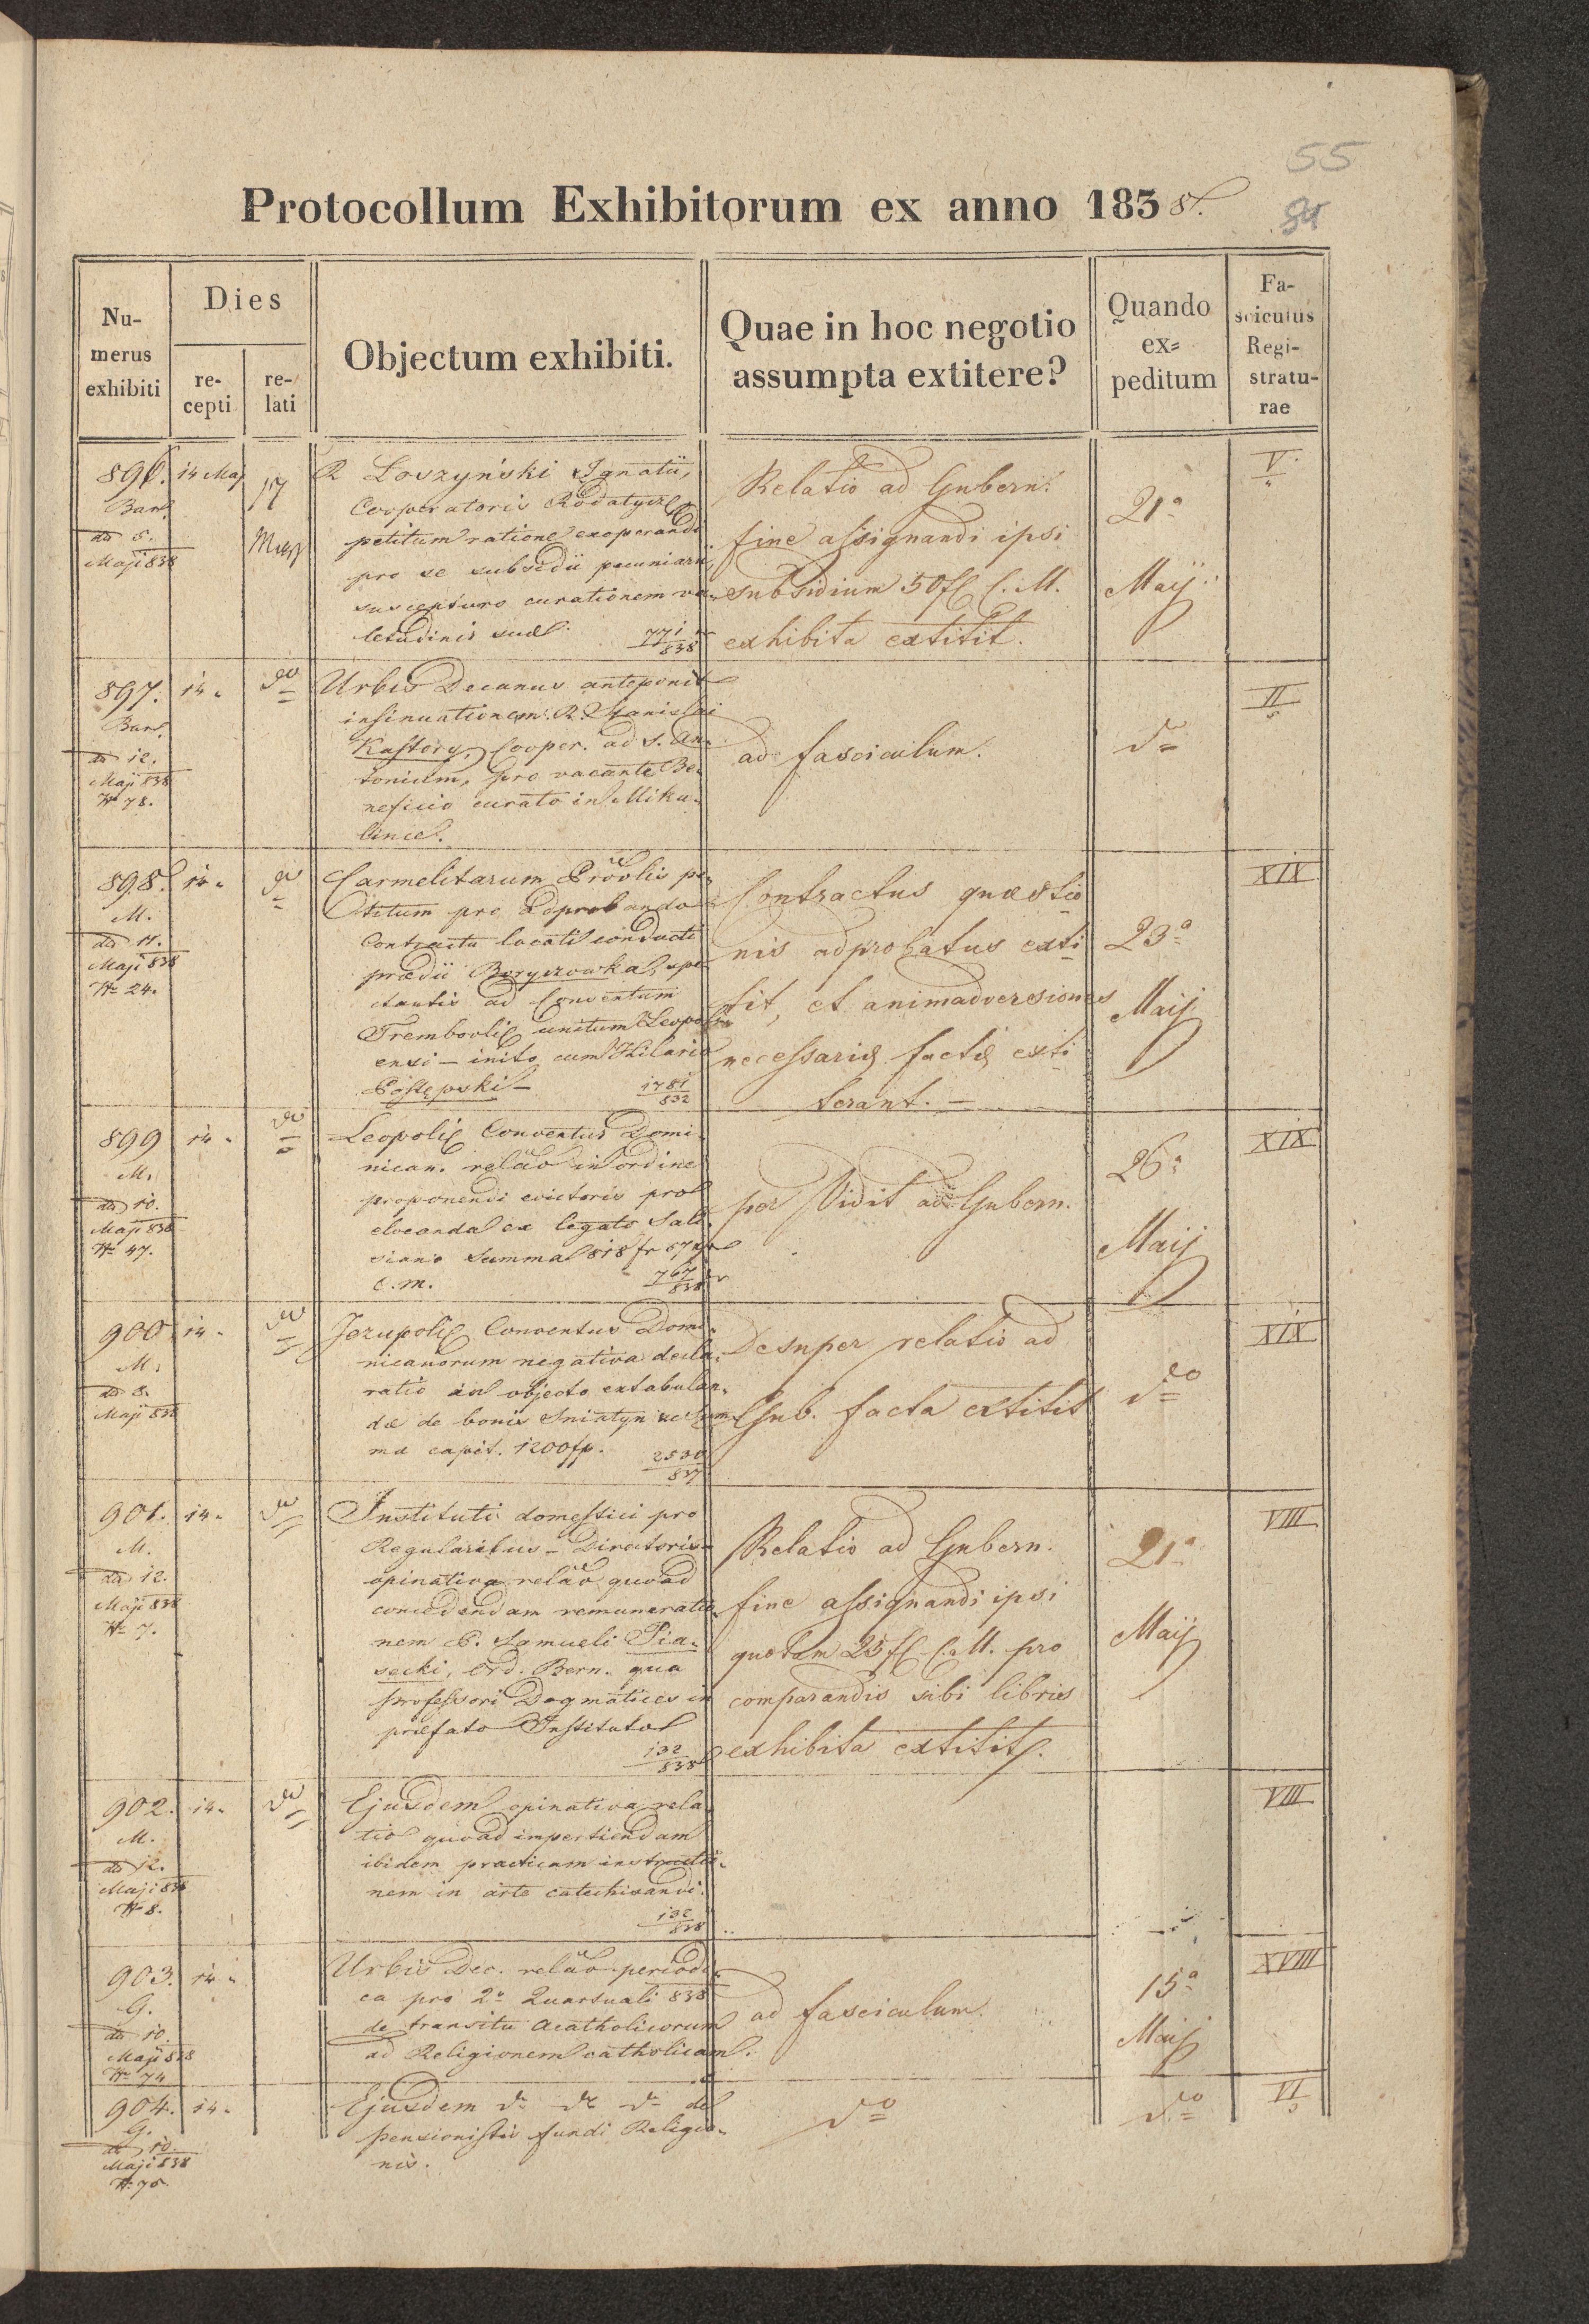 55
84
Protocollum Exhibitorum ex anno 1838.
Numerus exhibiti
Dies
recepti
relati
Objectum exhibiti.
Quae in hoc negotio assumpta extitere?
Quando expeditum
Fasciculus Registraturae
896. 14 Maj 17 Maji
Bar.
dd 5.
Maji 838
R Loszyński Ignatii,
Cooperatoris Rodatycz
petitum ratione exoperandi
pro se subsidii pecuniarii,
suscepturo curationem va-
letudinis suae. 771/838
Relatio ad Gubern.
fine assignandi ipsi
subsidium 50 f C. M.
exhibita extitit.
21a
Maij
V.
897. 14 do
Bar.
dd 12.
Maji 838
N 78.
Urbis Decanus anteponit
insinuationem R. Stanislai
Kastory, Cooper. ad S. An-
tonium, pro vacante Be-
neficio curato in Miku-
lince.
ad fasciculum.
do
II
898. 14 do
M.
dd 11.
Maji 838
N 24.
Carmelitarum Prövlis pe-
titum pro adprobando
Contractu locati conducti
praedii Boryczowka, spe-
ctantis ad Conventum
Trembovlae unitum Leopoli-
ensi – inito cum Hilario
Postępski – 1781/832
Contractus quaestio
nis adprobatus exti
tit, et animadversiones
necessariae factae exti
terant. –
23a
Maij
XIX
899 14 do
M.
dd 10.
Maji 838
N 47.
Leopoli Conventus Domi-
nican. relão in ordine
proponendi evictoris pro
elocanda ex legato Sale-
siano Summa 818 fr 57 xr
C. M. 767/838
per Vidit ad Gubern.
26a
Maij
XIX
900 14 do
M.
dd 8.
Maji 838
Jezupoli Conventus Domi-
nicanorum negativa decla-
ratio in objecto extabulan-
dae de bonis Sniatyn sum-
ma capit. 1200 fp. 2530/837
Desuper relatio ad
Gub. facta extitit
do
XIX
901. 14 do
M.
dd 12.
Maji 838
N 7.
Instituti domestici pro
Regularibus – Directoris
opinativa relão quoad
concedendam remuneratio-
nem P. Samueli Pia-
secki, Ord. Bern. qua
professori Dogmatices in
praefato Instituto
132/838
Relatio ad Gubern.
fine assignandi ipsi
quotam 25 f C. M. pro
comparandis sibi libris
exhibita extitit.
21a
Maij
VIII
902. 14 do
M.
dd 12.
Maji 838
N 8.
Ejusdem opinativa rela-
tio quoad impertiendam
ibidem practicam instructio-
nem in arte catechisandi.
132/838
VIII
903. 14
G.
dd 10.
Maji 838
N 74
Urbis Dec. relão periodi-
ca pro 2o Quartuali 838
de transitu Acatholicorum
ad Religionem catholicam.
ad fasciculum.
15a
Maij
XVIII
904. 14
G.
dd 10.
Maji 838
N 75.
Ejusdem do do do de
pensionistis fundi Religio-
nis.
do
do
VI